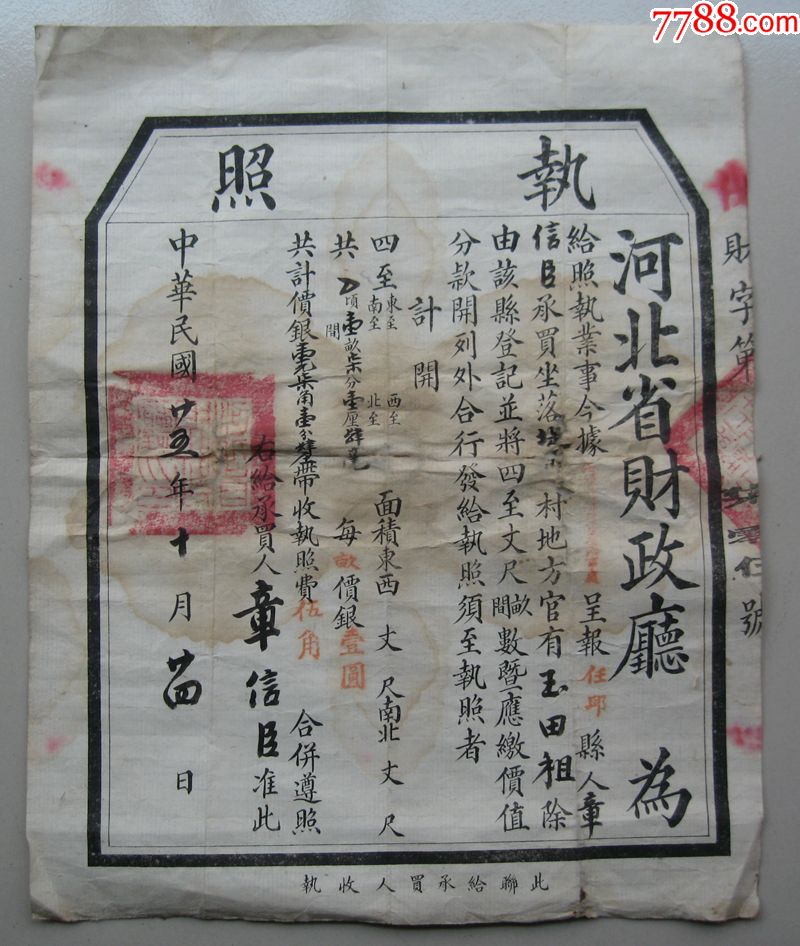 7788.com
執照
財字第
號
河北省財政廳 為
給照執業事今據 呈報任邱縣人章
信臣承買坐落 村地方官有玉田祖除
由該縣登記並將四至丈尺畝間數暨應繳價值
分款開列外合行發給執照須至執照者
計開
四至東至 南至 西至 北至 面積東西 丈 尺南北 丈 尺
共 頃壹畝柒分壹厘肆毫 間 每畝價銀壹圓
共計價銀壹元柒角壹分肆帶收執照費伍角 合併遵照
右給承買人章信臣准此
中華民國廿五年十月廿四日
此聯給承買人收執